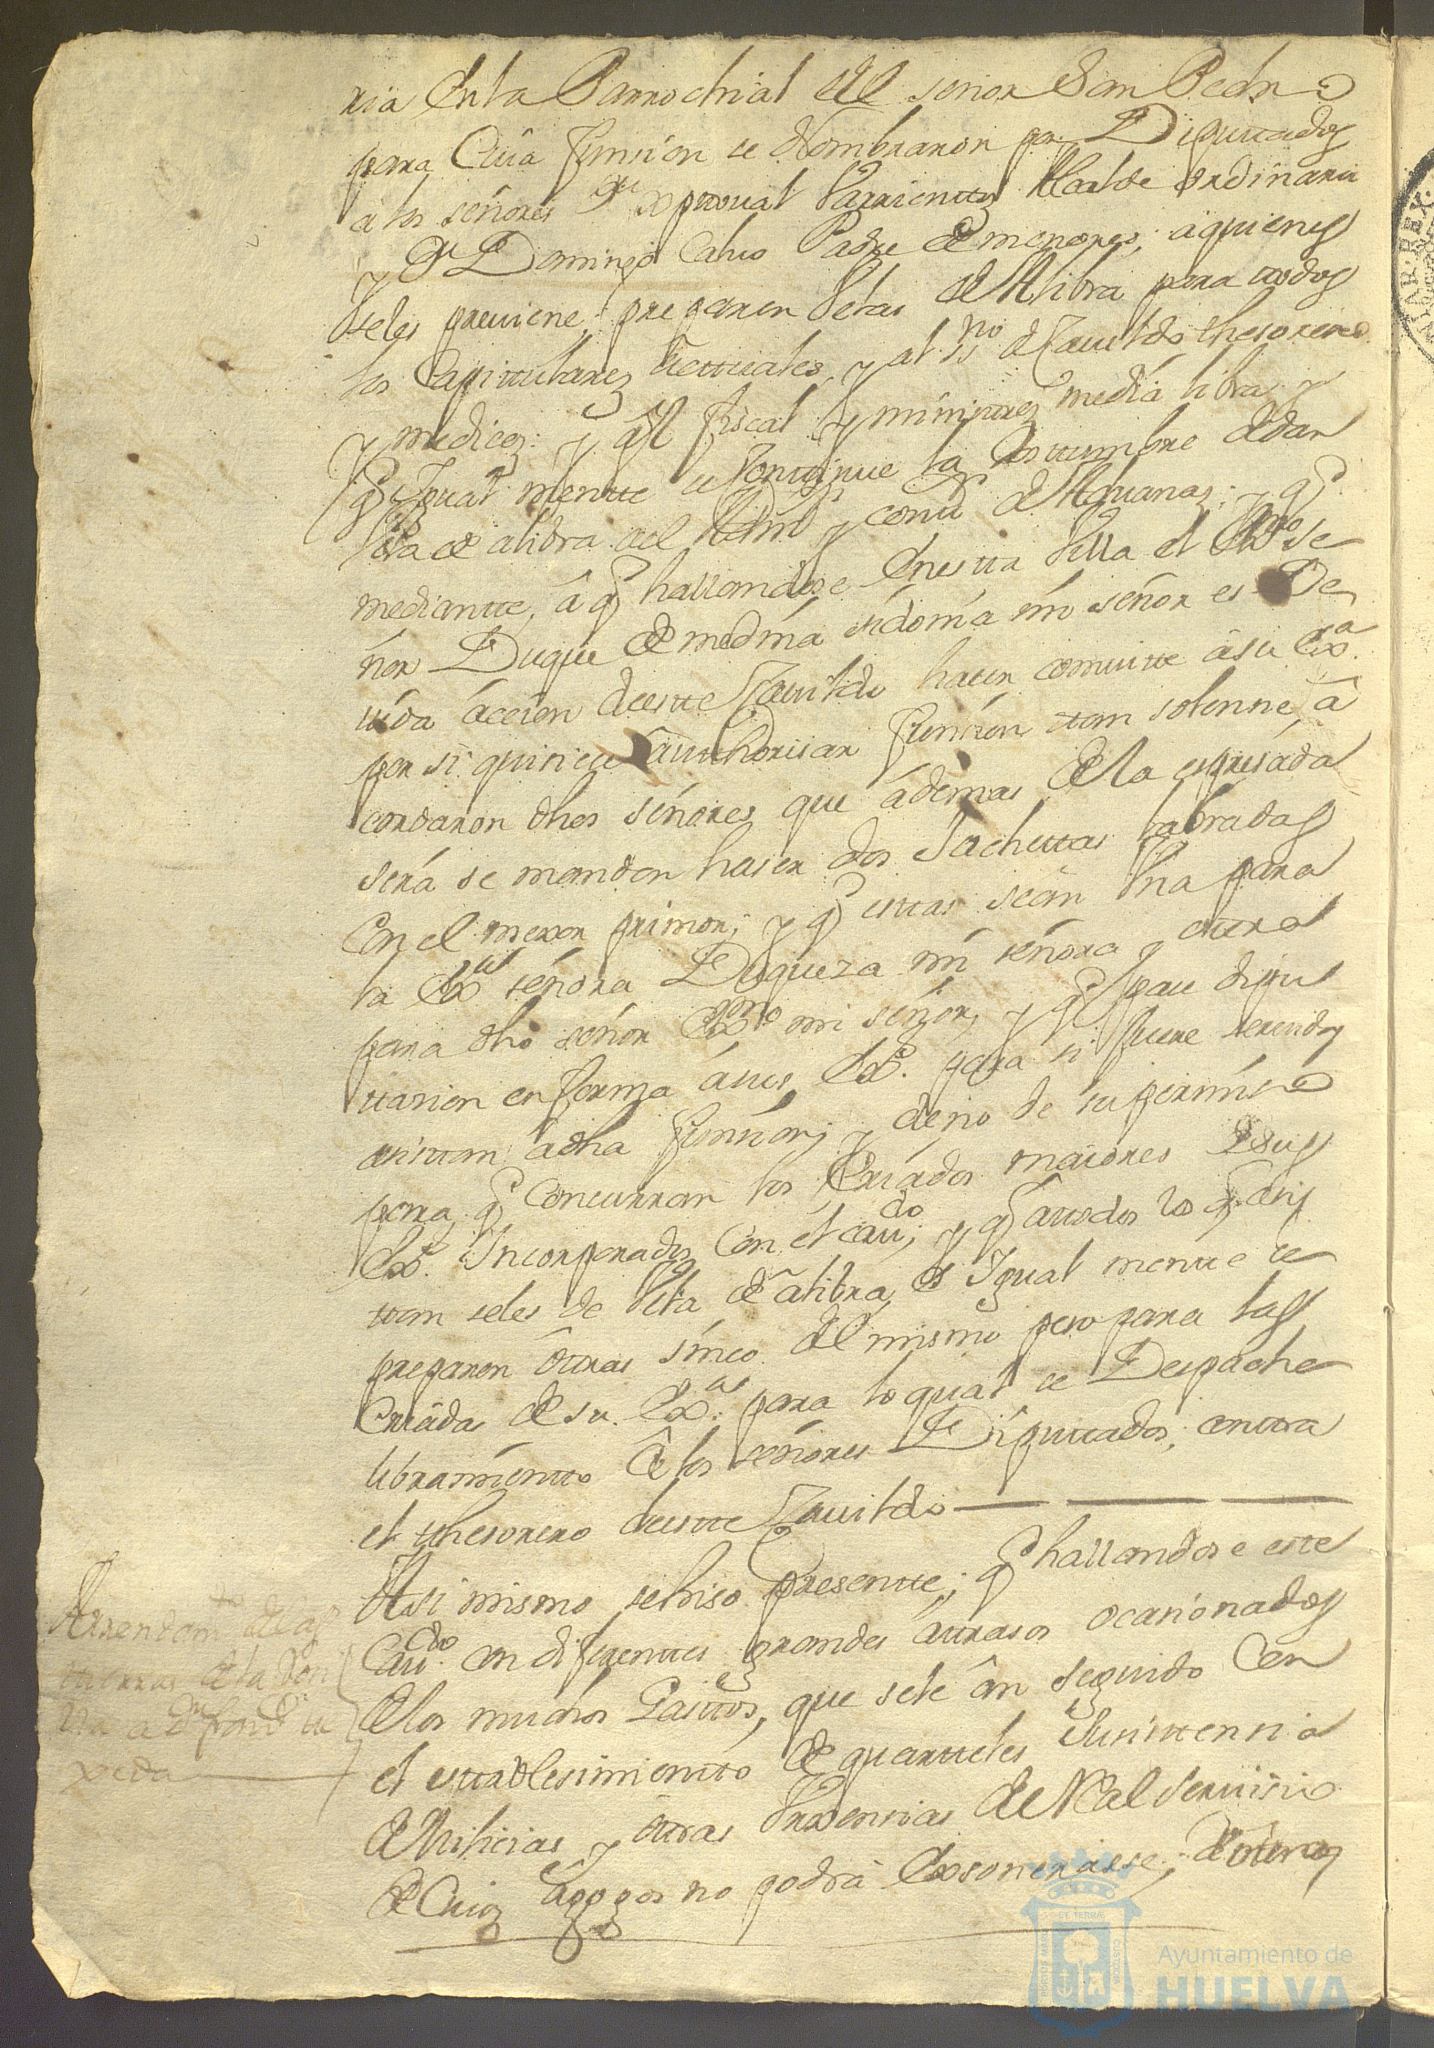 ria en la Parrochial del señor San Pedro
para Cuia funsion se Nombraron por Diputados
a los señores Dn Xptoval Barrientos Alcalde ordinario
y Dn Domingo Calvo Padre de menores; a quienes
se les previene, preparen velas de Alibra para todos
los Capitulares actuales, y al Sno de Cavildo thesorero
y medico: y al fiscal y ministros media libra y
q Igual mente se Continue la Costumbre de dar
vela de alibra al Admr y contr de Aduanas; y q
mediante, â q hallandose en esta Villa el Exmo Se
ñor Duque de medina sidonia mi señor es De
vida ácción de este Cavildo hacer convite â su Exa
por si quisiese Authorisar funsion tan solenne, â
cordaron dhos señores que ádemas de la espresada
será se manden haser dos Jachettas labradas
Con el mexor primor; y q estas seân Una para
la Exma señora Duqueza mi señora y otra
para dho señor Exmo mi señor, y q pase dipu
tasion en forma á sus Exs. para si fuere servidos
asistan âdha funsion; y de no de su permiso
para q concurran los Criados maiores de sus
Exs. Incorporados Con el cavdo; y q â todos los q asis
tan se les de Vela de alibra, e Igual mente se
preparen ôtras sinco del mismo peso para las
Criadas de su. Exas. para lo qual se Despache
libramiento â los señores Diputados, contra
el thesorero de este Cavildo
Asi mismo se hiso presente; q hallandose este
Cavdo. en diferentes grandes átrasos ocasionados
de los muchos Gastos, que se le ân seguido en
el establesimiento de quarteles Susistensia
de Milicias y otras Urxensias de Real Servisio
de Cuios âhogos no podrá Exsonerarse;
Arrendamto de las
tierras de la
a Dn
Ayuntamiento de
HUELVA